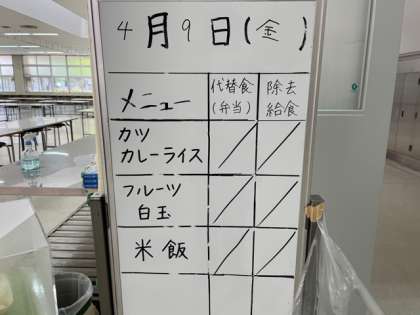 4月9日(金)
メニュー 代替食(弁当) 除去給食
カツ
カレーライス
フルーツ
白玉
米飯